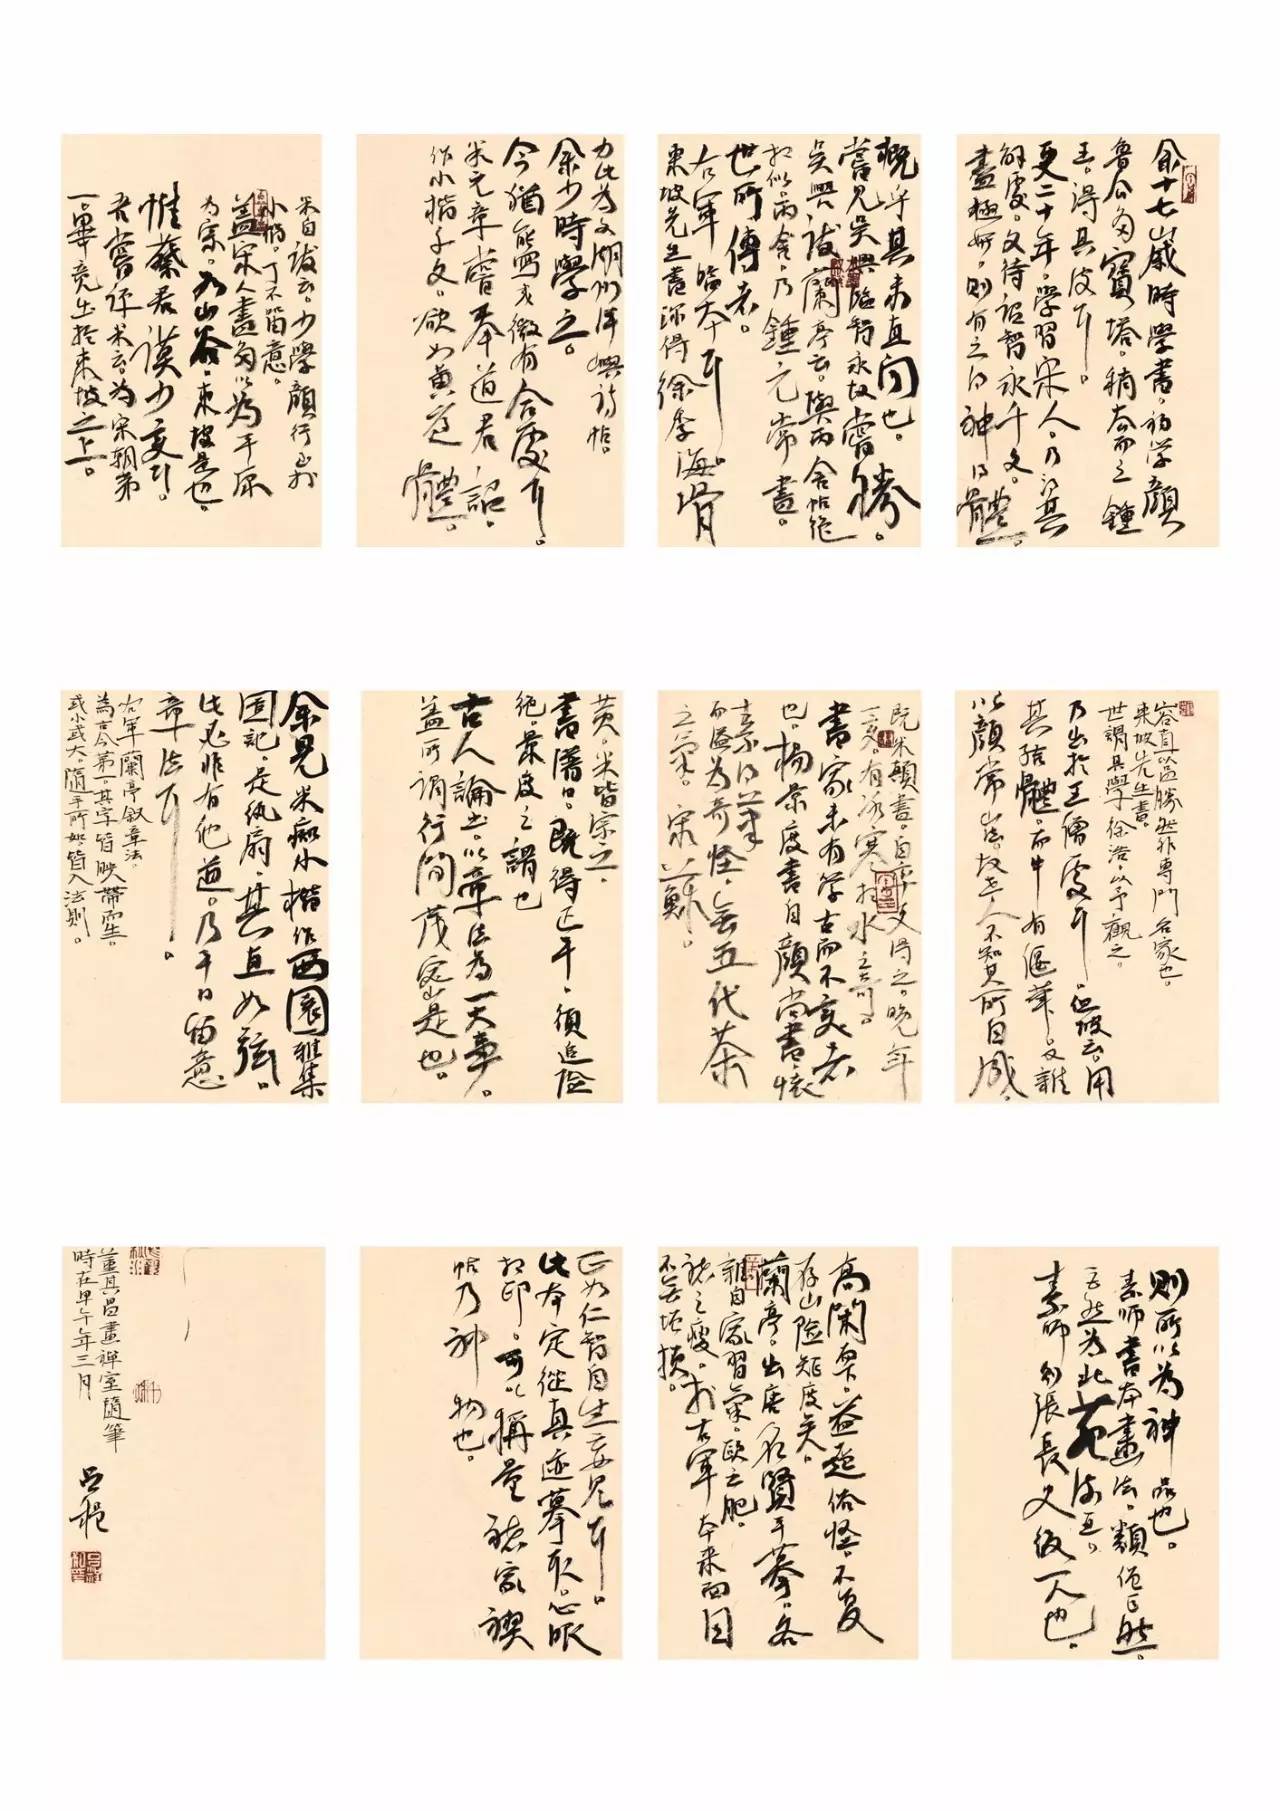 余十七歲時學書初學顏
魯公多寶塔稍去而之鍾
王得其皮耳
更二十年學習宋人乃得其
解處文待詔智永千文
盡極妍則有之得神得體
概乎其未直間也
嘗見吳興臨智永故當勝
吳興跋蘭亭云與丙舍帖絕
相似丙舍乃鍾元常書
世所傳者
右軍臨本耳
東坡先生書深得徐季海骨
力此為文湖州洋嶼詩帖
余少時學之
今猶能寫或微有合處耳
米元章嘗奉道君詔
作小楷千文欲如黃庭體
米自跋云少學顏行至於
小楷了不留意
蓋宋人書多以平原
為宗如山谷東坡是也
惟蔡君謨少變耳
吾嘗評米云為宋朝第
一畢竟出於東坡之上
容直以區勝然非專門名家也
東坡先生書
世謂其學徐浩以予觀之
乃出於王僧虔耳但坡云用
其結體而中有偃筆又雜
以顏常山法故世人不知其所自
既米顛書自率更得之晚年
一變有冰寒於水之奇
書家未有學古而不變者
也楊景度書自顏尚書懷
素得筆
而溢為奇怪無五代茶
之氣宋蘇
黃米皆宗之
書譜曰既得正平須追險
絕景度之謂也
古人論書以章法為一大事
蓋所謂行間茂密是也
余見米癡小楷作西園雅集
圖記是紈扇其直如弦
此必非有他道乃平日留意
章法耳
右軍蘭亭敘章法
為古今第一其字皆映帶而生
或小或大隨手所如皆入法則
則所以為神品也
素師書本畫法類僧巨然
巨然為北苑流亞
素師則張長史後一人也
高閑而下益趨俗怪不復
存山陰矩度矣
蘭亭出唐名賢手摹各
雜自家習氣歐之肥
褚之瘦於右軍本來面目
不無增損
正如仁智自生妄見耳
此本定從真迹摹取心眼
相印可以稱量諸家禊
帖乃神物也
董其昌畫禪室隨筆
時在甲午年三月